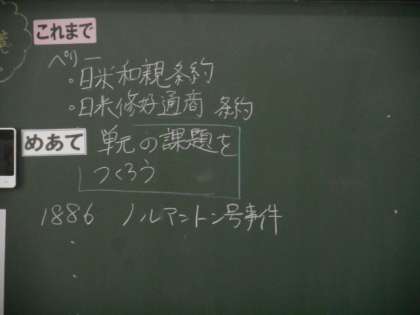 これまで
ペリー
・日米和親条約
・日米修好通商 条約
めあて 単元の課題を
つくろう
1886 ノルマントン号事件